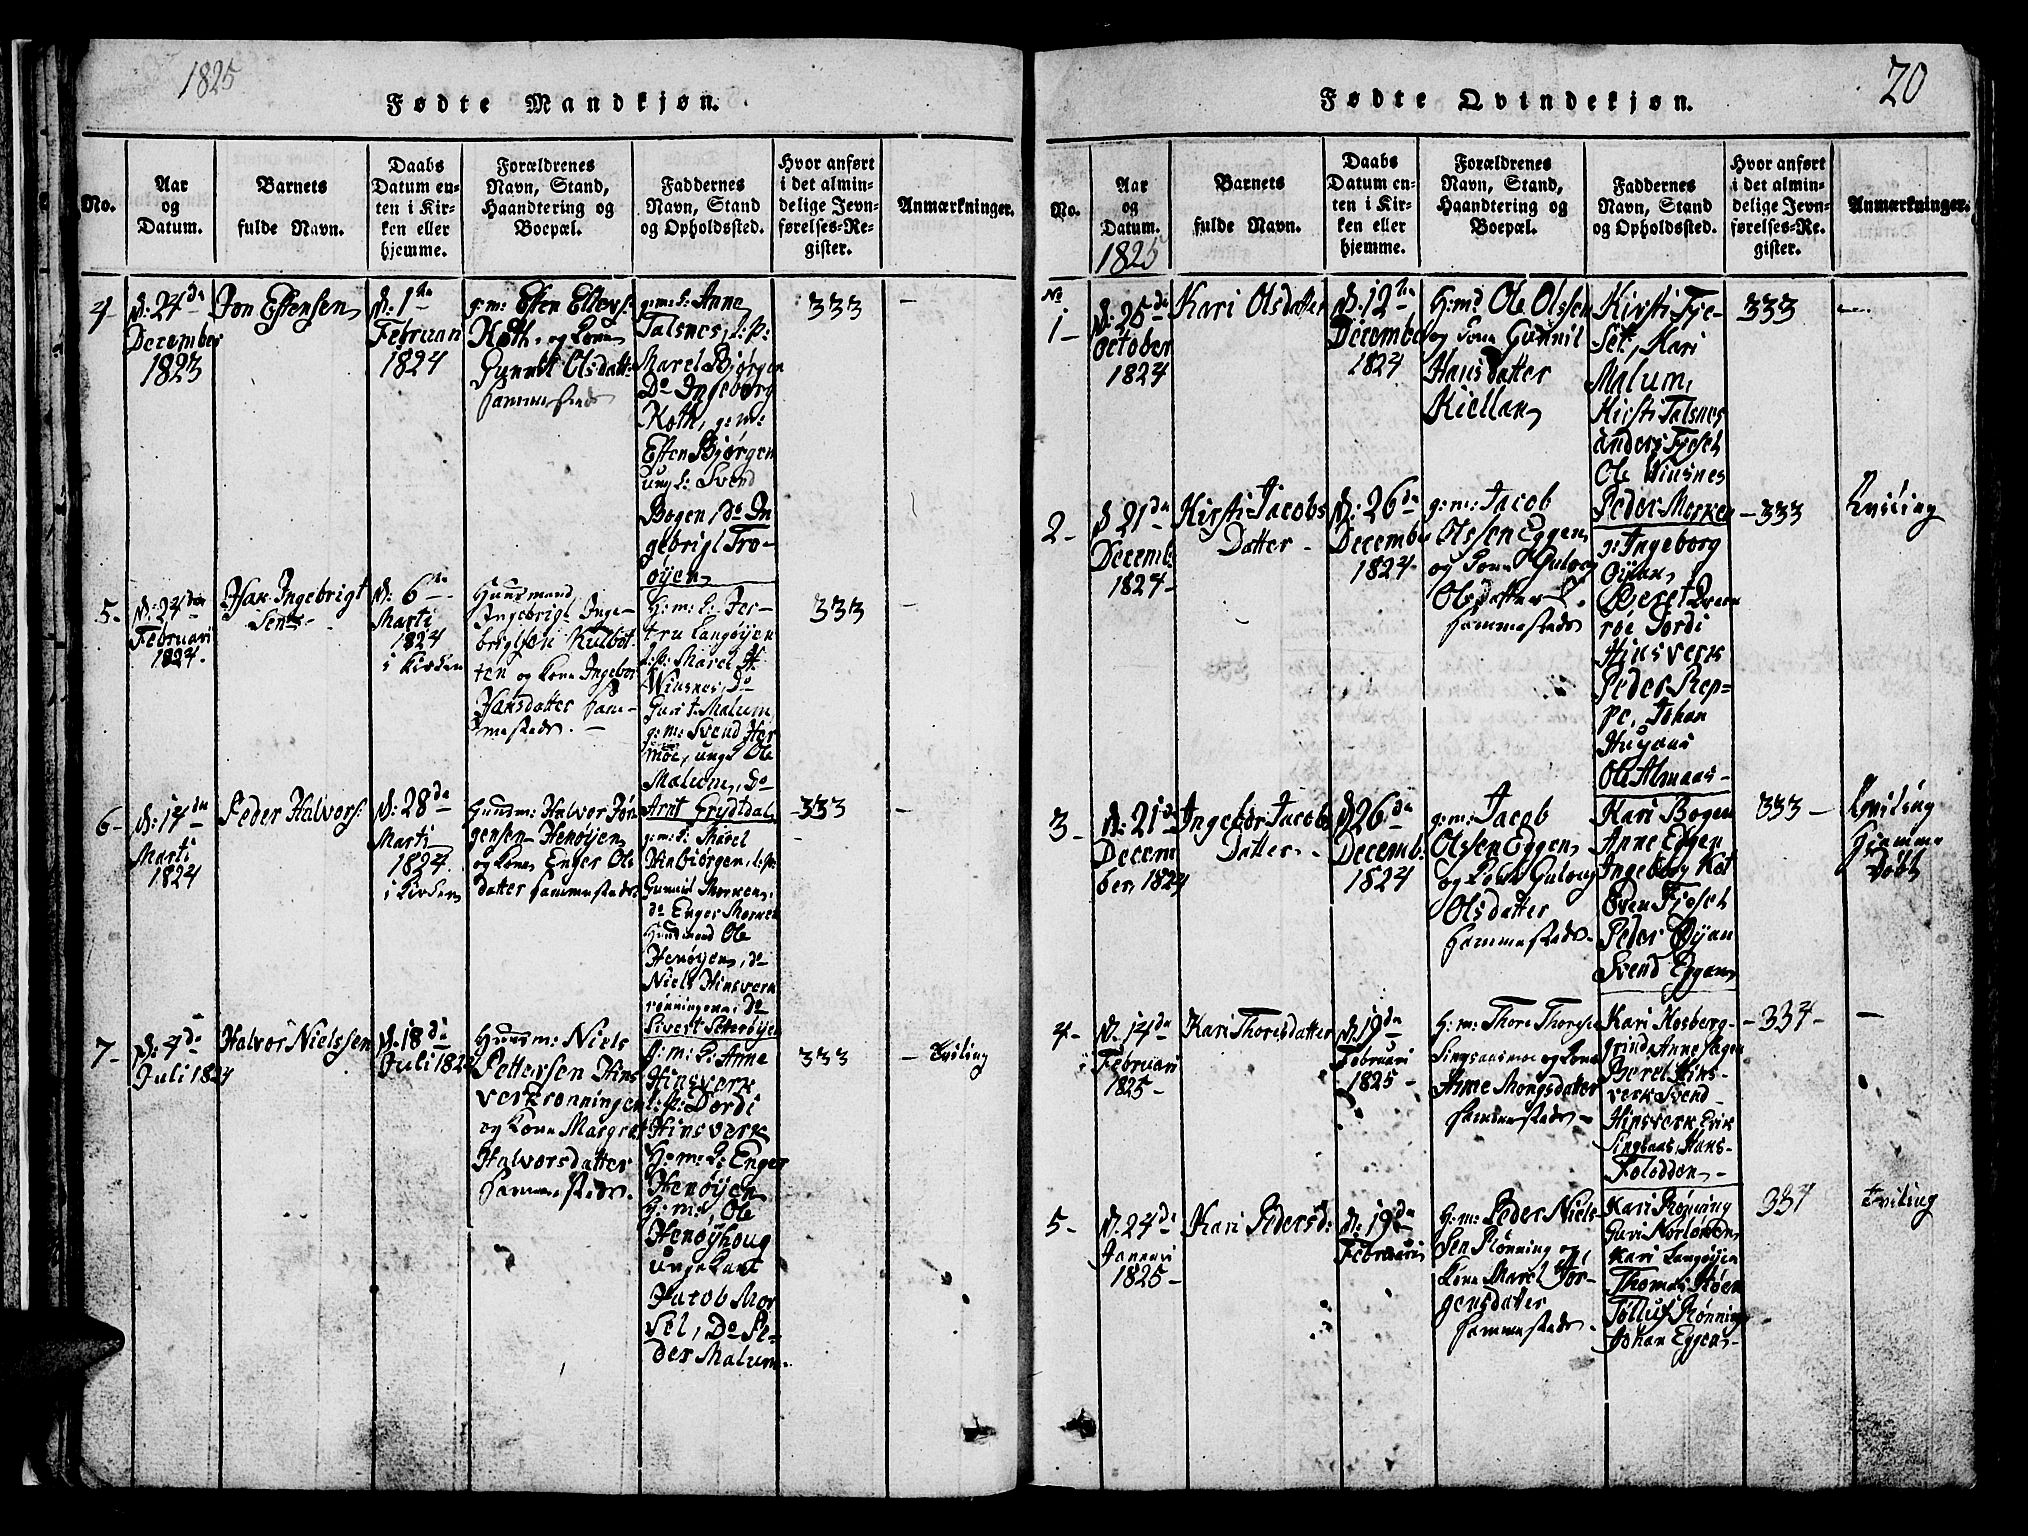 1825
Fødte Mandkjøn.
No.
Aar
og
Datum.
Barnets
fulde Navn.
Daabs
Datum en-
ten i Kir-
ken eller
hjemme.
Forældrenes
Navn, Stand,
Haandtering og
Boepæl.
Faddernes
Navn, Stand
og Opholdssted.
Hvor anført
i det almin-
delige Jevn-
førelses-Re-
gister.
Anmærkninger.
4-
D: 24de
December
1823
Jon Estensen
D: 1ste
Februari
1824
g: m: Esten Ellevs:
Koth, og Kone
Gunnil Olsdatt:
sammesteds
g: m: k: Anne
Talsnes, l: p:
Marel Bjørgen
Do Ingeborg
Koth, g: m:
Esten Bjørgen
ung k: Svend
Bogen, do In
gebrigt Trø-
øyen
333
-
5-
D: 24de
Februari
1824.
Hans Ingebrigt
Sen -
D: 6te
Marti
1824
i Kirken
Huusmand
Ingebrigt Inge-
brigtsen Kulbot-
ten og Kone Ingebor
Hansdatter sam-
mesteds. -
H: m: k: Jer-
tru Langøyen
l: p: Marel
Winsnes, Do
Guri Malum
g: m: Svend Her
moe, unge Ole
Malum, Do
Arnt Grydtdal
333
-
6-
D: 14de
Marti
1824
Peder Halvors:
D: 28de
Marti
1824
i Kirken
Huusm: Halvor Jør
gensen Henøyen
og Kone Enger Ols
datter sammesteds
g: m: k: Marel
Winbiørgen, l: p:
Gunnil Morken,
do Enger Morken
Huusmand Ole
Henøyen, do
Niels Hinsverk
rønningen, Do
Sivert Setterøyen
-333
-
7-
D: 4de
Juli 1824
Halvor Nielssen
D: 18de
Juli 1824
Huusm: Niels
Pettersen Hins
verkrønningen
og Kone Margret
Halvorsdatter
sammesteds.
g: m: k: Anne
Hinsverk
l: p: Dordi
Hinsverk
H: m: k: Enger
Henøyen
H: m: Ole
Henøyhoug
unge Karl
Jacob Mor
sel, Do Pe-
der Malum.
333
- Tviling
20
Fødte Qvindekjøn.
No.
Aar
og
Datum.
1825
Barnets
fulde Navn.
Daabs
Datum en-
ten i Kir-
ken eller
hjemme.
Forældrenes
Navn, Stand,
Haandtering og
Boepæl.
Faddernes
Navn, Stand
og Opholdssted.
Hvor anført
i det almin-
delige Jevn-
førelses-Re-
gister.
Anmærkninger.
No
1-
D: 25de
October
1824
Kari Olsdatter
D: 12te
December
1824
H: md Ole Olssen
og Kone Gunnil
Hansdatter
Kiellan
Kirsti Fje-
Set, Kari
Malum,
Kirsti Talsnes
Anders Fjeset
Ole Winsnes
Peder Morken
333
-
2-
D 21de
Decemb:
1824-
Kirsti Jacobs
Datter -
D: 26de
December
1824-
g: m: Jacob
Olssen Eggen,
og Kone Gulaug
Olsdatter
sammesteds
g: Ingeborg
Øyan,
Beret
roe, Dordi
Hinsverk
Peder Rep-
pe, Johan
Ole Almaas-
-333
Tviling
3-
D: 21de
Decem
ber, 1824
Ingebor Jacobs
Datter -
D 26de
Decemb:
1824
g: m: Jacob
Olssen Eggen,
og Kone Gulaug
Olsdatter
sammesteds-
Kari Bogen
Anne Eggen
Ingeborg Kot
Even Fjeset
Peder Øyan
Svend Eggan
333 -
Tviling
Hjemme
Døbt
4-
D: 14de
Februari
1825-
Kari Thoresdatter
D: 19de
Februari
1825-
H: m: Thore Thorese
Singsaasmoe og Kone
Anne Mongsdatter
sammesteds-
Kari Kosberg-
grind, Anne Hagen
Beret Hins-
verk Svend-
Hinsverk Erik
Singsaas, Hans
Foloddon-
-334-
-
5-
D: 24de
Januari
1825-
Kari Pedersd:
D: 19de
Februarii
H: m: Peder Niels-
Sen Rønning og
Kone Marel Jør-
gensdatter
sammesteds.
Kari Rønning
Guri Norløkken
Kari Langøyen
Thomas Hoen
Tolluf Rønning
Johan Eggen-
334
Tviling